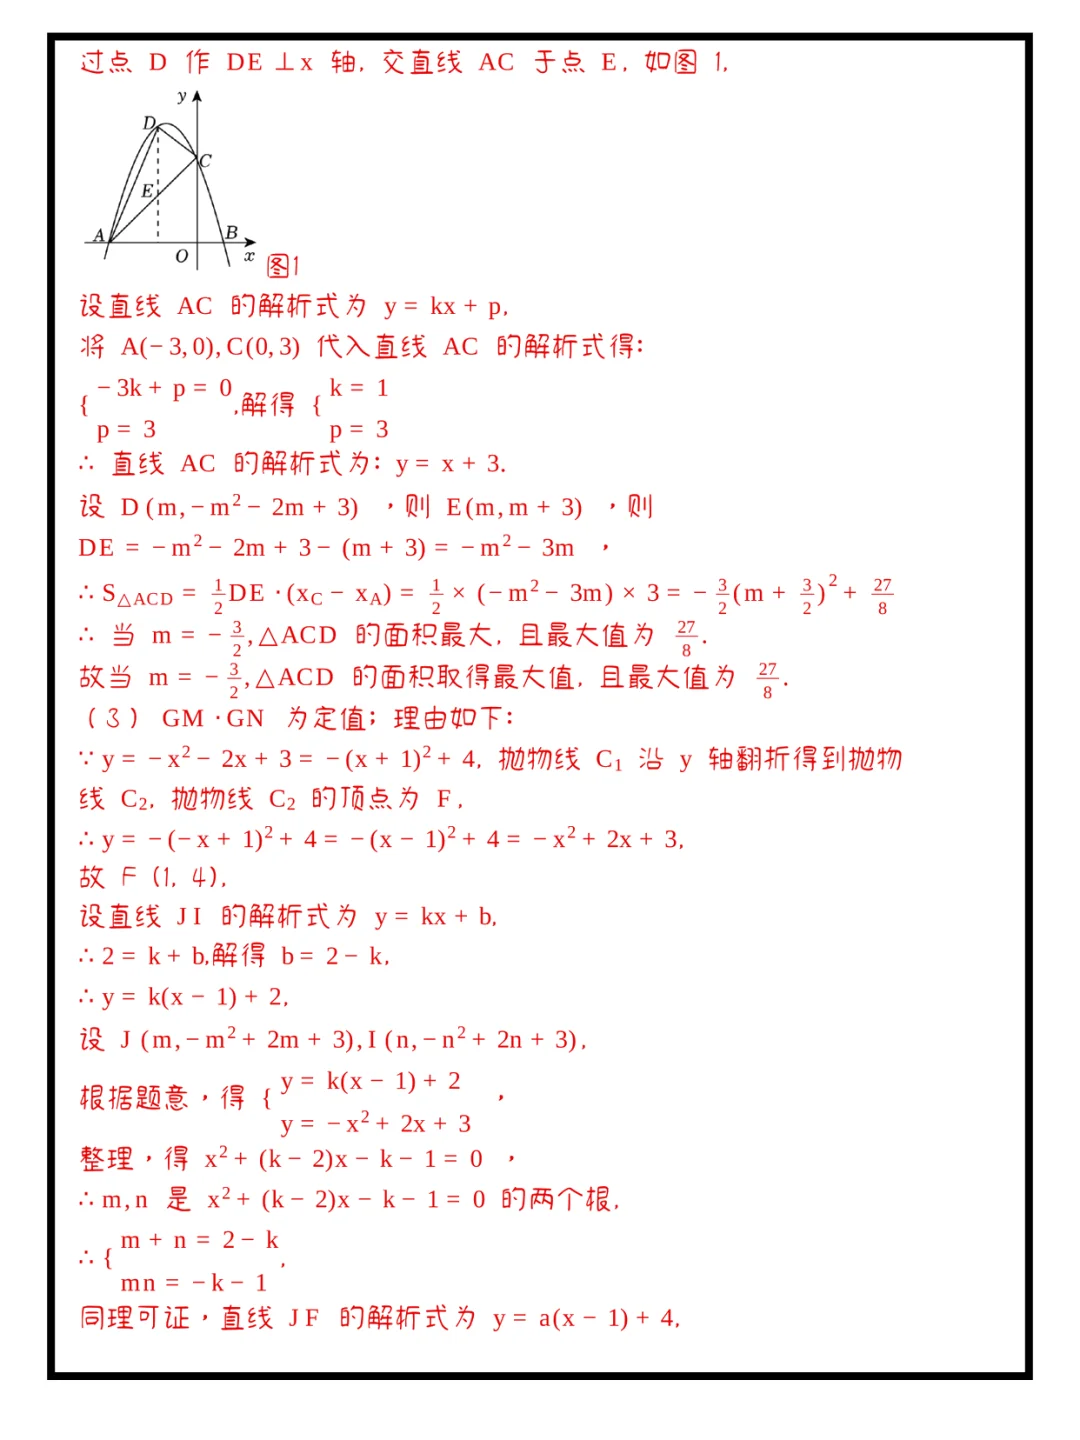 过点 D 作 DE ⊥x 轴, 交直线 AC 于点 E, 如图 1,
y
D
C
E
A
B
O
x
图1
设直线 AC 的解析式为 y = kx + p,
将 A(− 3, 0), C(0, 3) 代入直线 AC 的解析式得:
{ − 3k + p = 0 ,解得 { k = 1
p = 3 p = 3
∴ 直线 AC 的解析式为: y = x + 3.
设 D (m, − m² − 2m + 3) ，则 E(m, m + 3) ，则
DE = − m² − 2m + 3 − (m + 3) = − m² − 3m ，
∴ S△ACD = 1/2 DE · (xC − xA) = 1/2 × (− m² − 3m) × 3 = − 3/2 (m + 3/2)² + 27/8
∴ 当 m = − 3/2 , △ACD 的面积最大, 且最大值为 27/8 .
故当 m = − 3/2 , △ACD 的面积取得最大值, 且最大值为 27/8 .
（3） GM · GN 为定值; 理由如下:
∵ y = − x² − 2x + 3 = − (x + 1)² + 4, 抛物线 C₁ 沿 y 轴翻折得到抛物
线 C₂, 抛物线 C₂ 的顶点为 F,
∴ y = − (− x + 1)² + 4 = − (x − 1)² + 4 = − x² + 2x + 3,
故 F (1, 4),
设直线 J I 的解析式为 y = kx + b,
∴ 2 = k + b,解得 b = 2 − k,
∴ y = k(x − 1) + 2,
设 J (m, − m² + 2m + 3), I (n, − n² + 2n + 3),
根据题意，得 { y = k(x − 1) + 2 ，
y = − x² + 2x + 3
整理，得 x² + (k − 2)x − k − 1 = 0 ，
∴ m, n 是 x² + (k − 2)x − k − 1 = 0 的两个根,
∴ { m + n = 2 − k ,
mn = − k − 1
同理可证，直线 J F 的解析式为 y = a(x − 1) + 4,